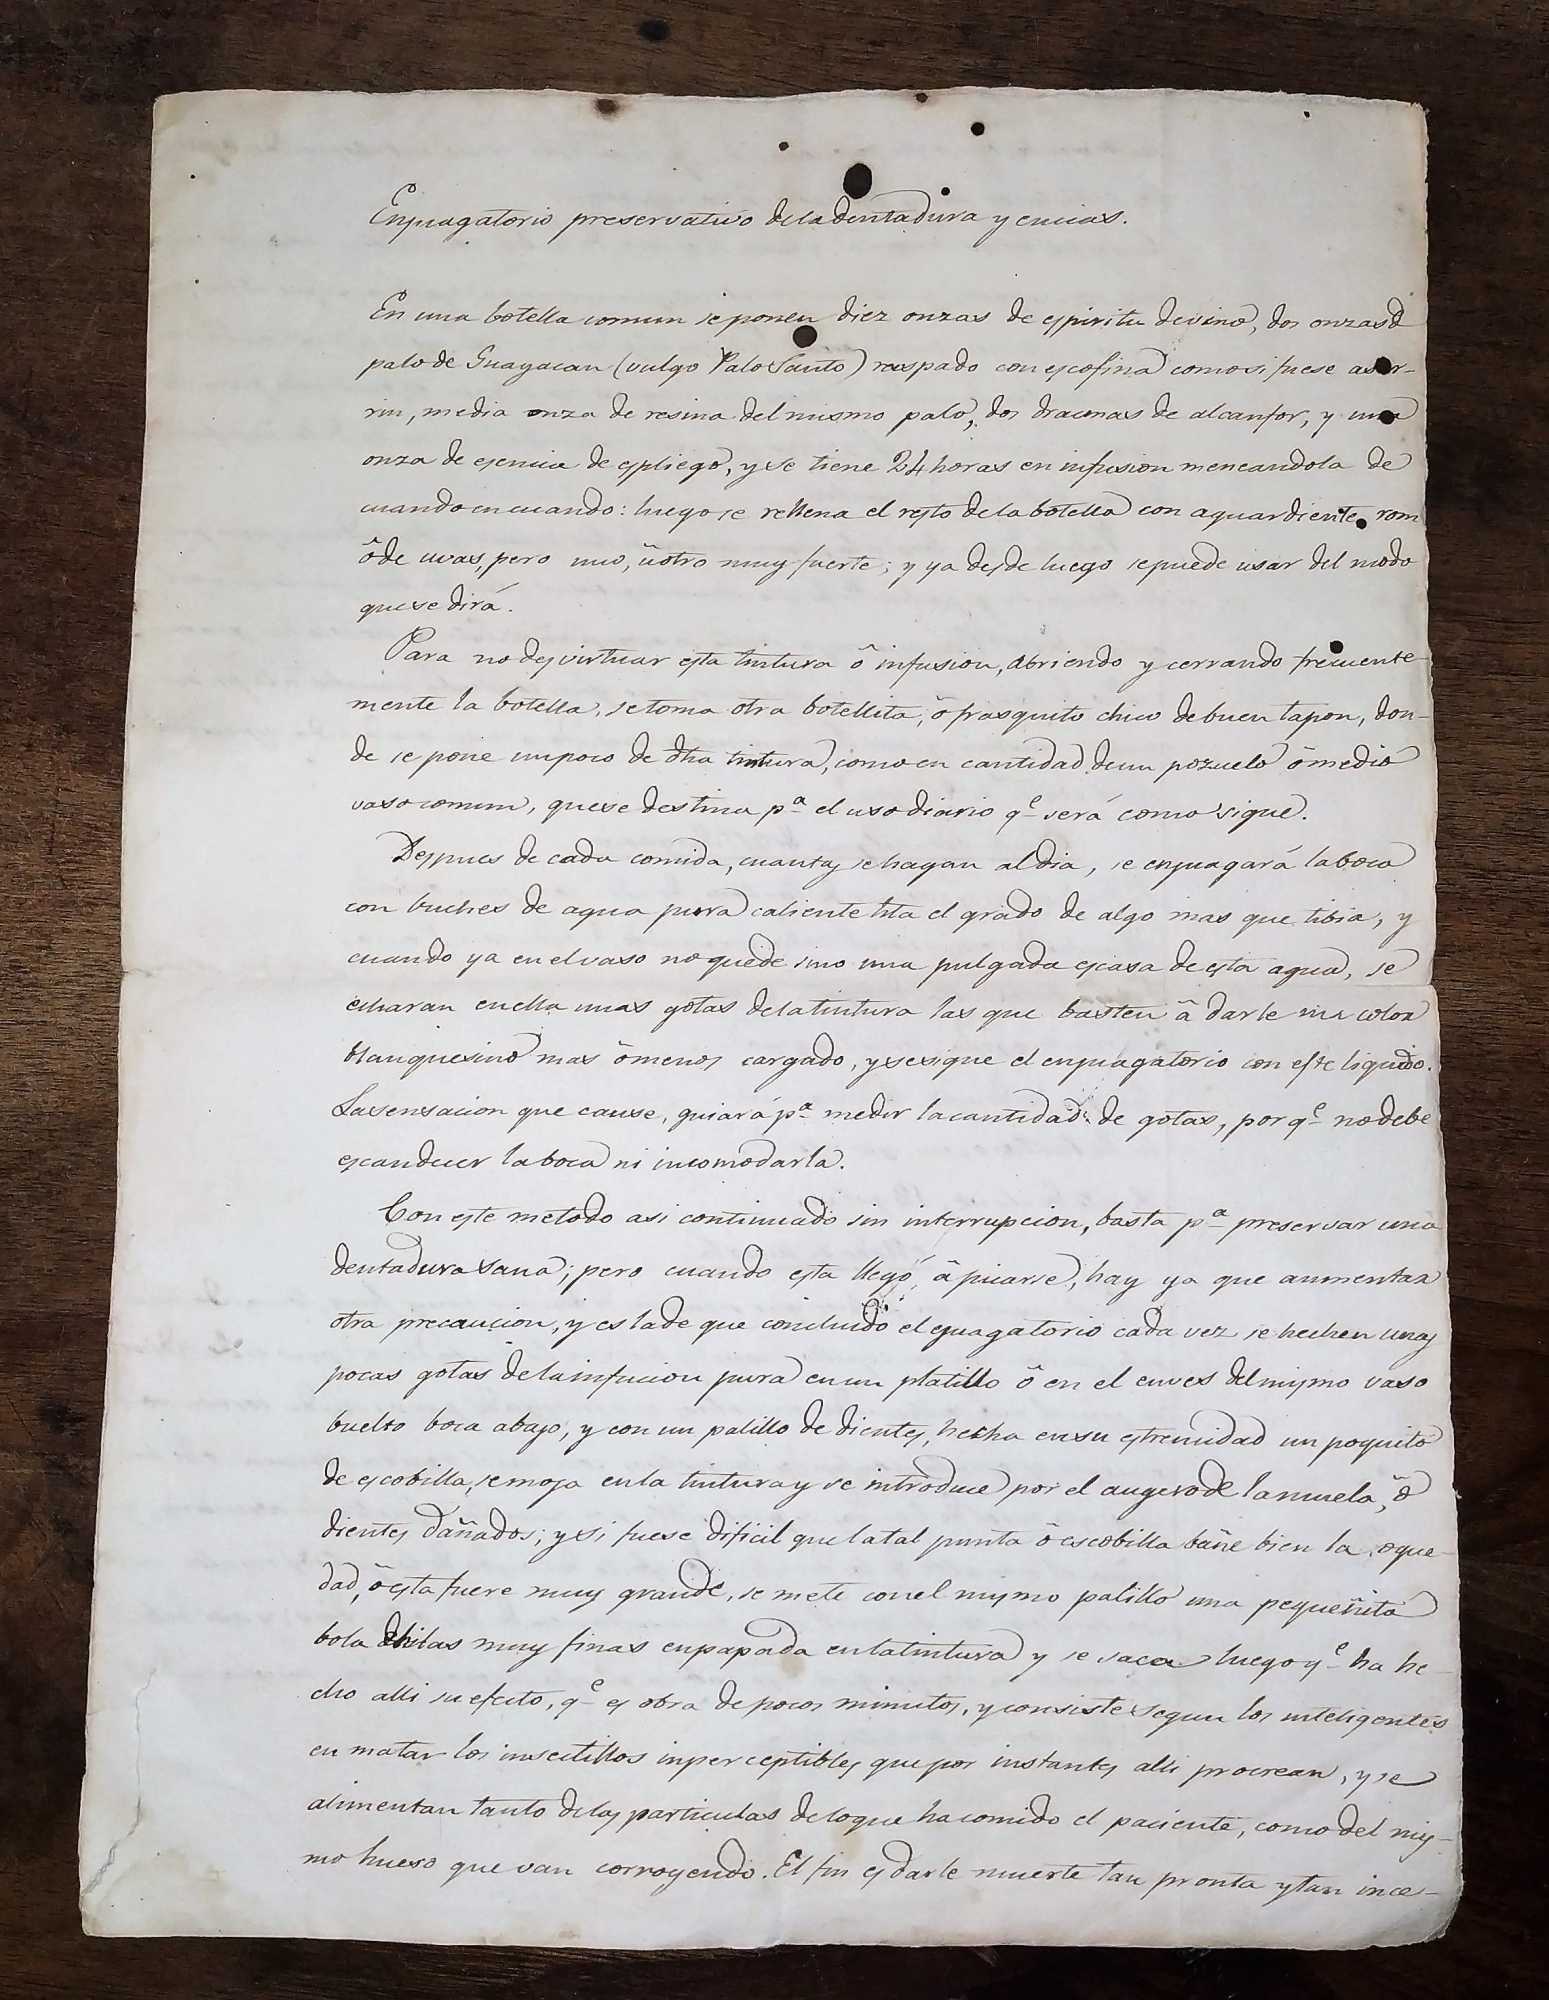 Enjuagatorio preservativo de la dentadura y encias.
En una botella comun se ponen diez onzas de espiritu de vino, dos onzas d
palo de Guayacan (vulgo Palo Santo) raspado con escofina como si fuese aser-
rin, media onza de resina del mismo palo, dos dracmas de alcanfor, y una
onza de esencia de espliego, y se tiene 24 horas en infusion meneandola de
cuando en cuando: luego se rellena el resto de la botella con aguardiente rom
ô de uvas, pero uno, û otro muy fuerte; y ya desde luego se puede usar del modo
que se dirá.
Para no desvirtuar esta tintura ô infusion, abriendo y cerrando frecuente-
mente la botella, se toma otra botellita, ô frasquito chico de buen tapon, don-
de se pone un poco de dha tintura, como en cantidad de un pozuelo ô medio
vaso comun, que se destina pª el uso diario qe será como sigue.
Despues de cada comida, cuantas se hagan al dia, se enjuagará la boca
con buches de agua pura caliente hta el grado de algo mas que tibia, y
cuando ya en el vaso no quede sino una pulgada escasa de esta agua, se
echaran en ella unas gotas de la tintura las que basten â darle un color
blanquesino mas ô menos cargado, y se sigue el enjuagatorio con este liquido.
La sensacion que cause, guiará pª medir la cantidad de gotas, por qe no debe
escandecer la boca ni incomodarla.
Con este metodo asi continuado sin interrupcion, basta pª preservar una
dentadura sana; pero cuando esta llegó â picarse, hay ya que aumentar
otra precaucion, y es la de que concluido el ejuagatorio cada vez se hechen unas
pocas gotas de la infucion pura en un platillo ô en el enves del mismo vaso
buelto boca abajo, y con un palillo de dientes, hecha en su estremidad un poquito
de escobilla, se moja en la tintura y se introduce por el augero de la muela, ô
dientes dañados; y si fuese dificil que la tal punta ô escobilla bañe bien la oque-
dad, ô esta fuere muy grande, se mete con el mismo palillo una pequeñita
bola d hilas muy finas enpapada en la tintura y se saca luego qe ha he-
cho alli su efecto, qe es obra de pocos minutos, y consiste segun los inteligentes
en matar los insectillos inperceptibles que por instantes alli procrean, y se
alimentan tanto de las particulas de lo que ha comido el paciente, como del mis-
mo hueso que van corroyendo. El fin es darle muerte tan pronta y tan ince-